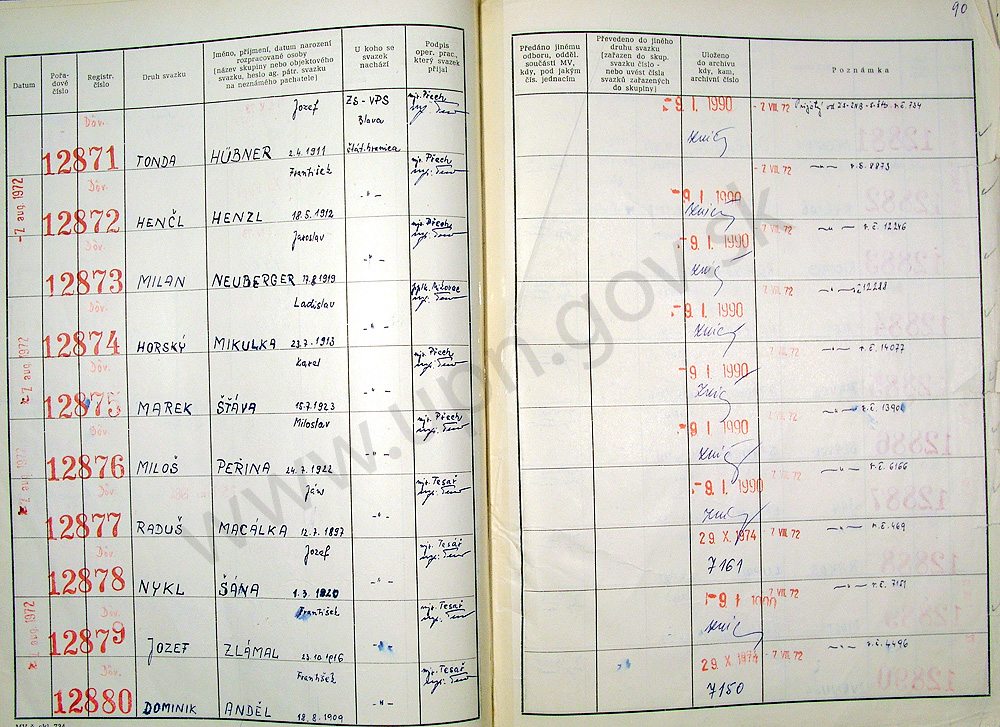 90
Datum
Pořa-
dové
číslo
Registr.
číslo
Druh svazku
Jméno, příjmení, datum narození
rozpracované osoby
(název skupiny nebo objektového
svazku, heslo ag. pátr. svazku
na neznámého pachatele)
U koho se
svazek
nachází
Podpis
oper. prac.,
který svazek
přijal
Předáno jinému
odboru, odděl.
součásti MV,
kdy, pod jakým
čís. jednacím
Převedeno do jiného
druhu svazku
(zařazen do skup.
svazku číslo -
nebo uvést čísla
svazků zařazených
do skupiny)
Uloženo
do archivu
kdy, kam,
archivní číslo
Poznámka
Dův. Jozef ZS-VPS mjr. Přech 9. I. 1990 - 7 VIII. 72
Blava
12871 TONDA HÜBNER 2.4.1911 Štát. hranica
-7. aug. 1972 Dův. František mjr. Přech 9. I. 1990 - 7 VIII. 72 r.č. 8873
12872 HENČL HENZL 18.5.1912 -"-
Dův. Jaroslav mjr. Přech - 9. I. 1990 - 7 VIII. 72 r.č. 12246
12873 MILAN NEUBERGER 17.8.1919 -"-
Dův. Ladislav - 9. I. 1990 - 7 VIII. 72 12288
12874 HORSKÝ MIKULKA 23.7.1913 -"-
7. aug. 1972 Dův. Karel mjr. Přech - 9. I. 1990 - 7 VIII. 72 r.č. 14077
12875 MAREK ŠŤÁVA 15.7.1923 -"-
Dův. Miloslav mjr. Přech - 9. I. 1990 - 7 VIII. 72
12876 MILOŠ PEŘINA 24.7.1922 -"-
7. aug. 1972 Dův. Ján mjr. Tesař - 9. I. 1990 - 7 VIII. 72 r.č. 6166
12877 RADUŠ MACÁLKA 12.7.1897 -"-
Dův. Jozef mjr. Tesář 29. X. 1974 - 7 VIII. 72 r.č. 469
12878 NYKL ŠÁNA 1.3.1920 -"- 7161
7. aug. 1972 Dův. František mjr. Tesař - 9. I. 1990 - 7 VIII. 72 r.č. 7151
12879 JOZEF ZLÁMAL 23.10.1916 -"-
Dův. František mjr. Tesař 29. X. 1974 - 7 VIII. 72 r.č. 4496
12880 DOMINIK ANDĚL 18.8.1909 -"- 7150
www.upn.gov.sk